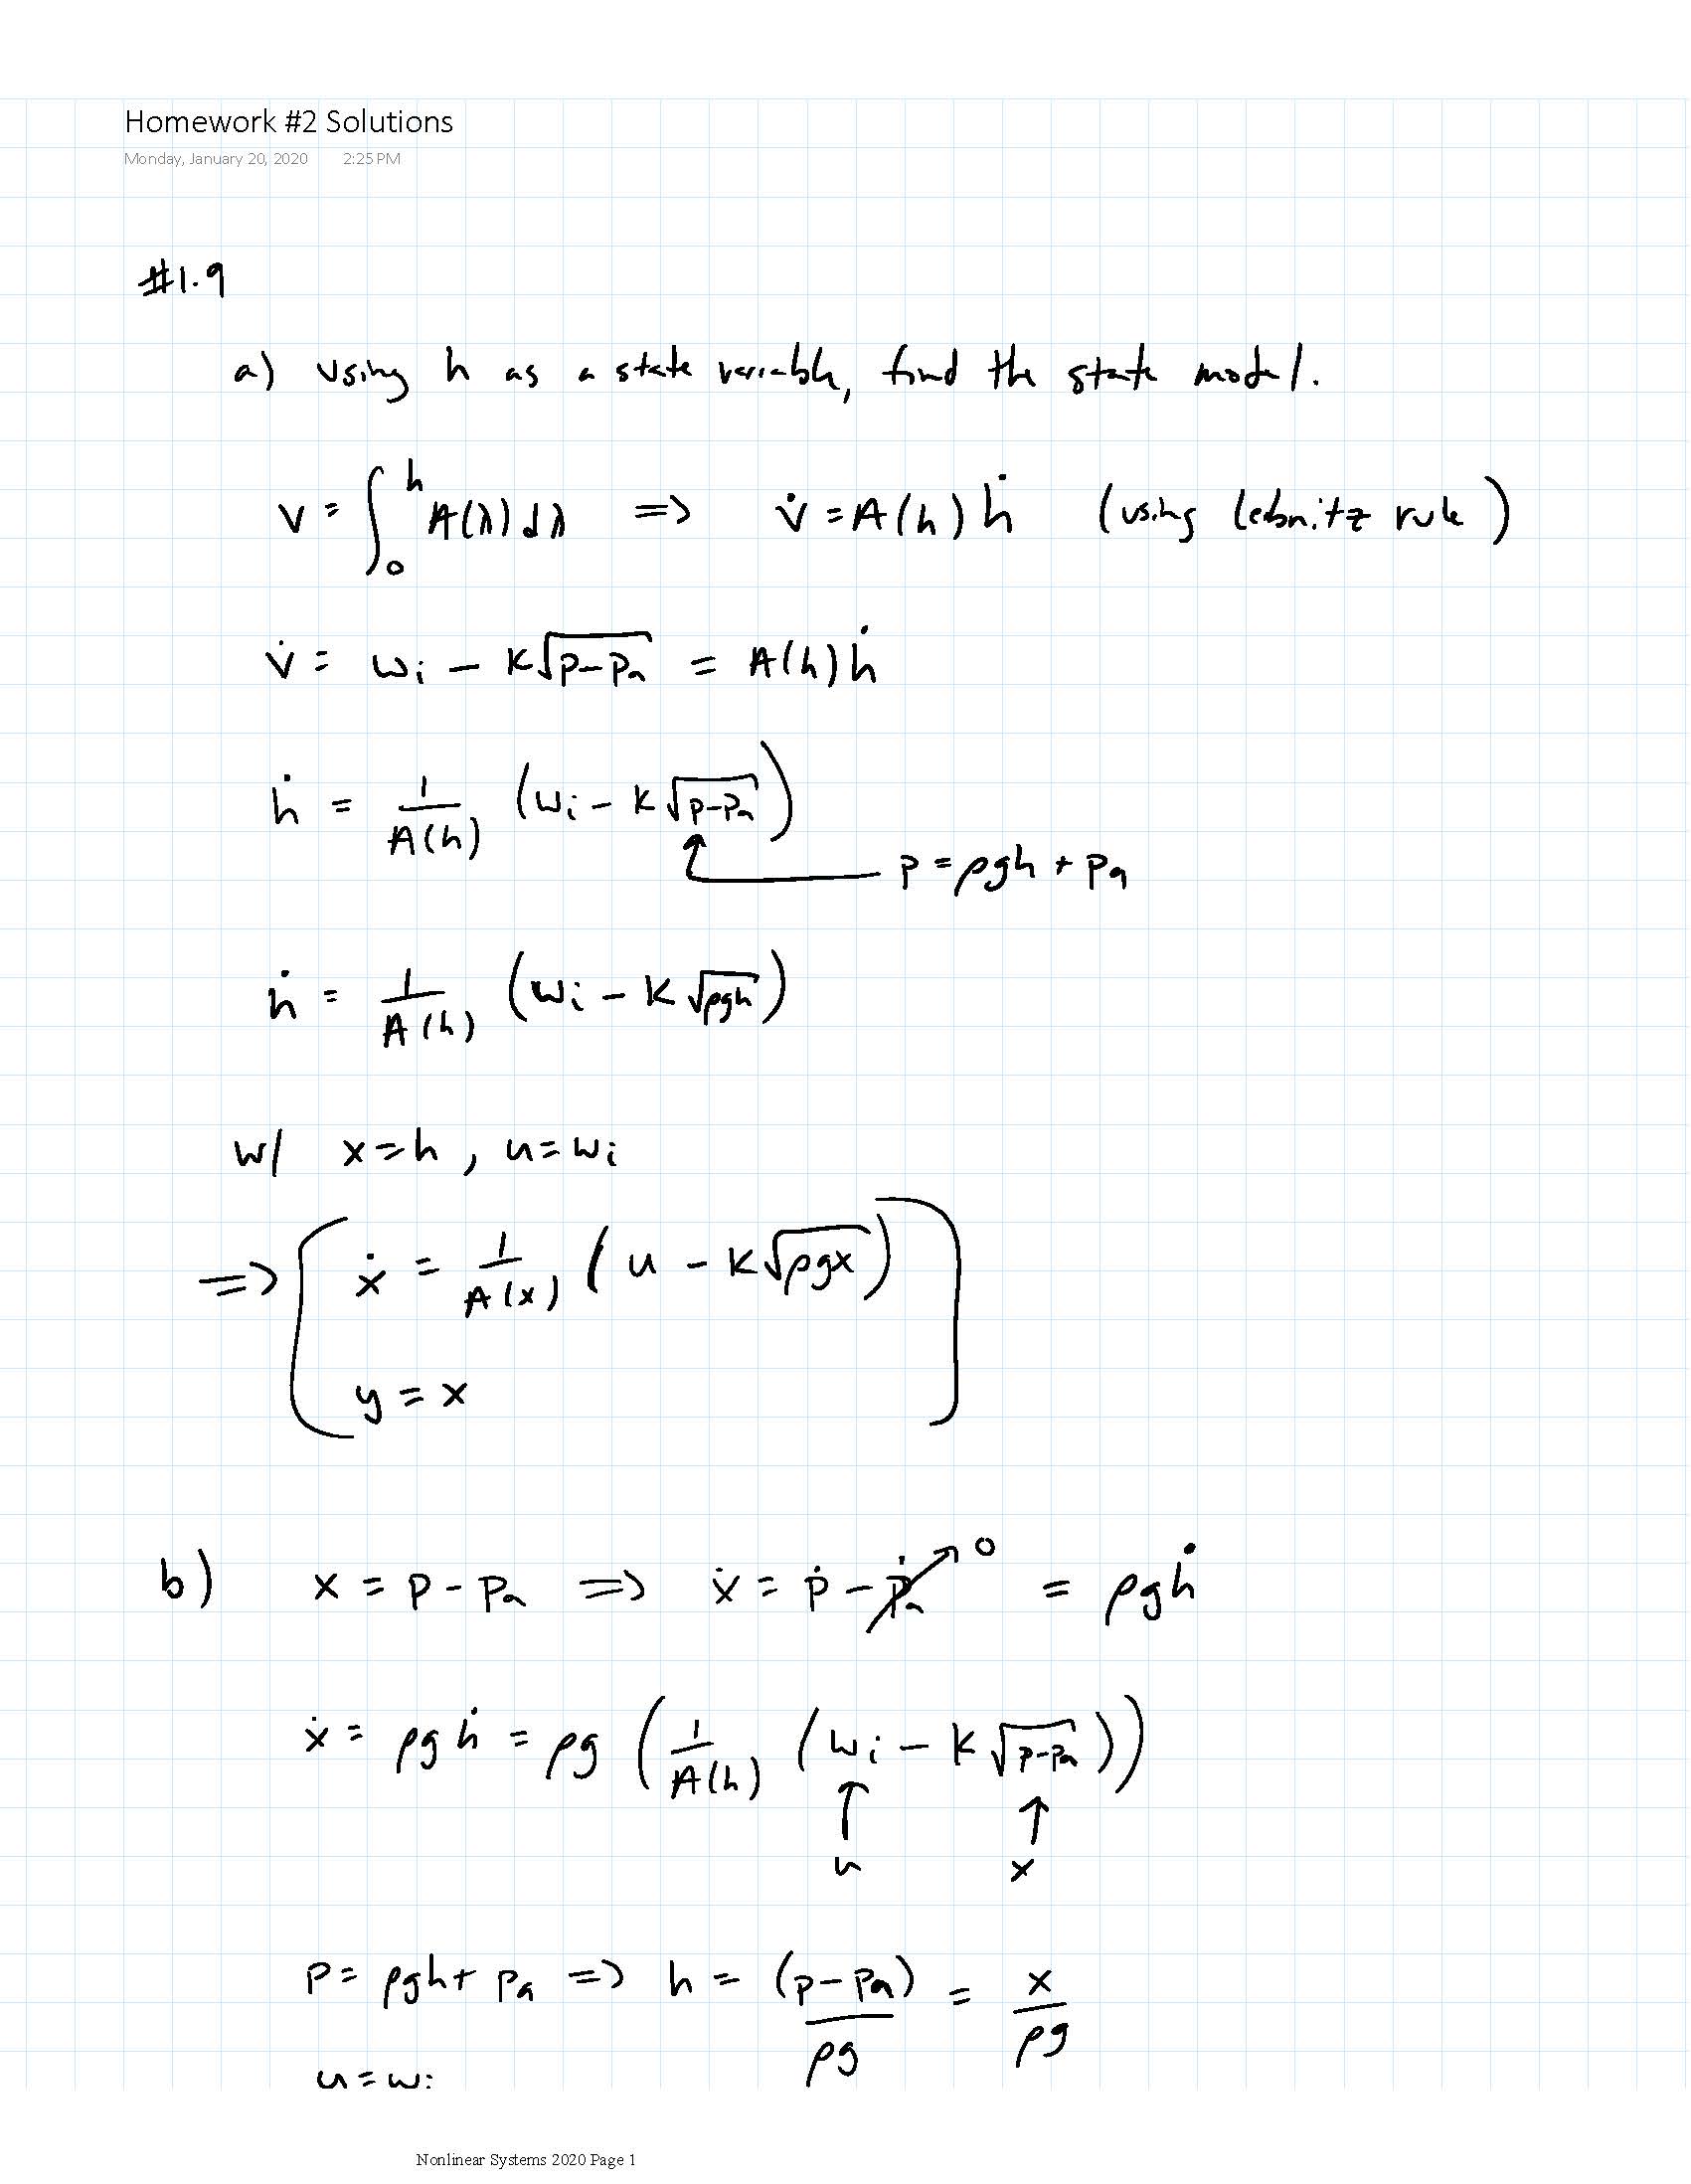 Homework #2 Solutions
Monday, January 20, 2020 2:25 PM
#1.9
a) using h as a state variable, find the state model.
v = ∫₀ʰ A(λ) dλ => v̇ = A(h) ḣ (using leibnitz rule)
v̇ = wᵢ - k√(p-pₐ) = A(h) ḣ
ḣ = 1/A(h) (wᵢ - k√(p-pₐ))
p = ρgh + pₐ
ḣ = 1/A(h) (wᵢ - k√(ρgh))
w/ x=h, u=wᵢ
=> [ ẋ = 1/A(x) (u - k√(ρgx))
y = x ]
b) x = p - pₐ => ẋ = ṗ - ṗₐ 0 = ρgḣ
ẋ = ρgḣ = ρg (1/A(h) (wᵢ - k√(p-pₐ)))
u x
p = ρgh + pₐ => h = (p-pₐ)/ρg = x/ρg
u = wᵢ
Nonlinear Systems 2020 Page 1